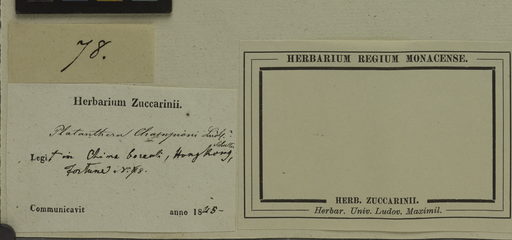 78.
Herbarium Zuccarinii.
Platanthera Championi Lindl.
Legit in China boreali, Hongkong,
Fortune. n. 78.
Communicavit anno 1845
HERBARIUM REGIUM MONACENSE.
HERB. ZUCCARINII.
Herbar. Univ. Ludov. Maximil.